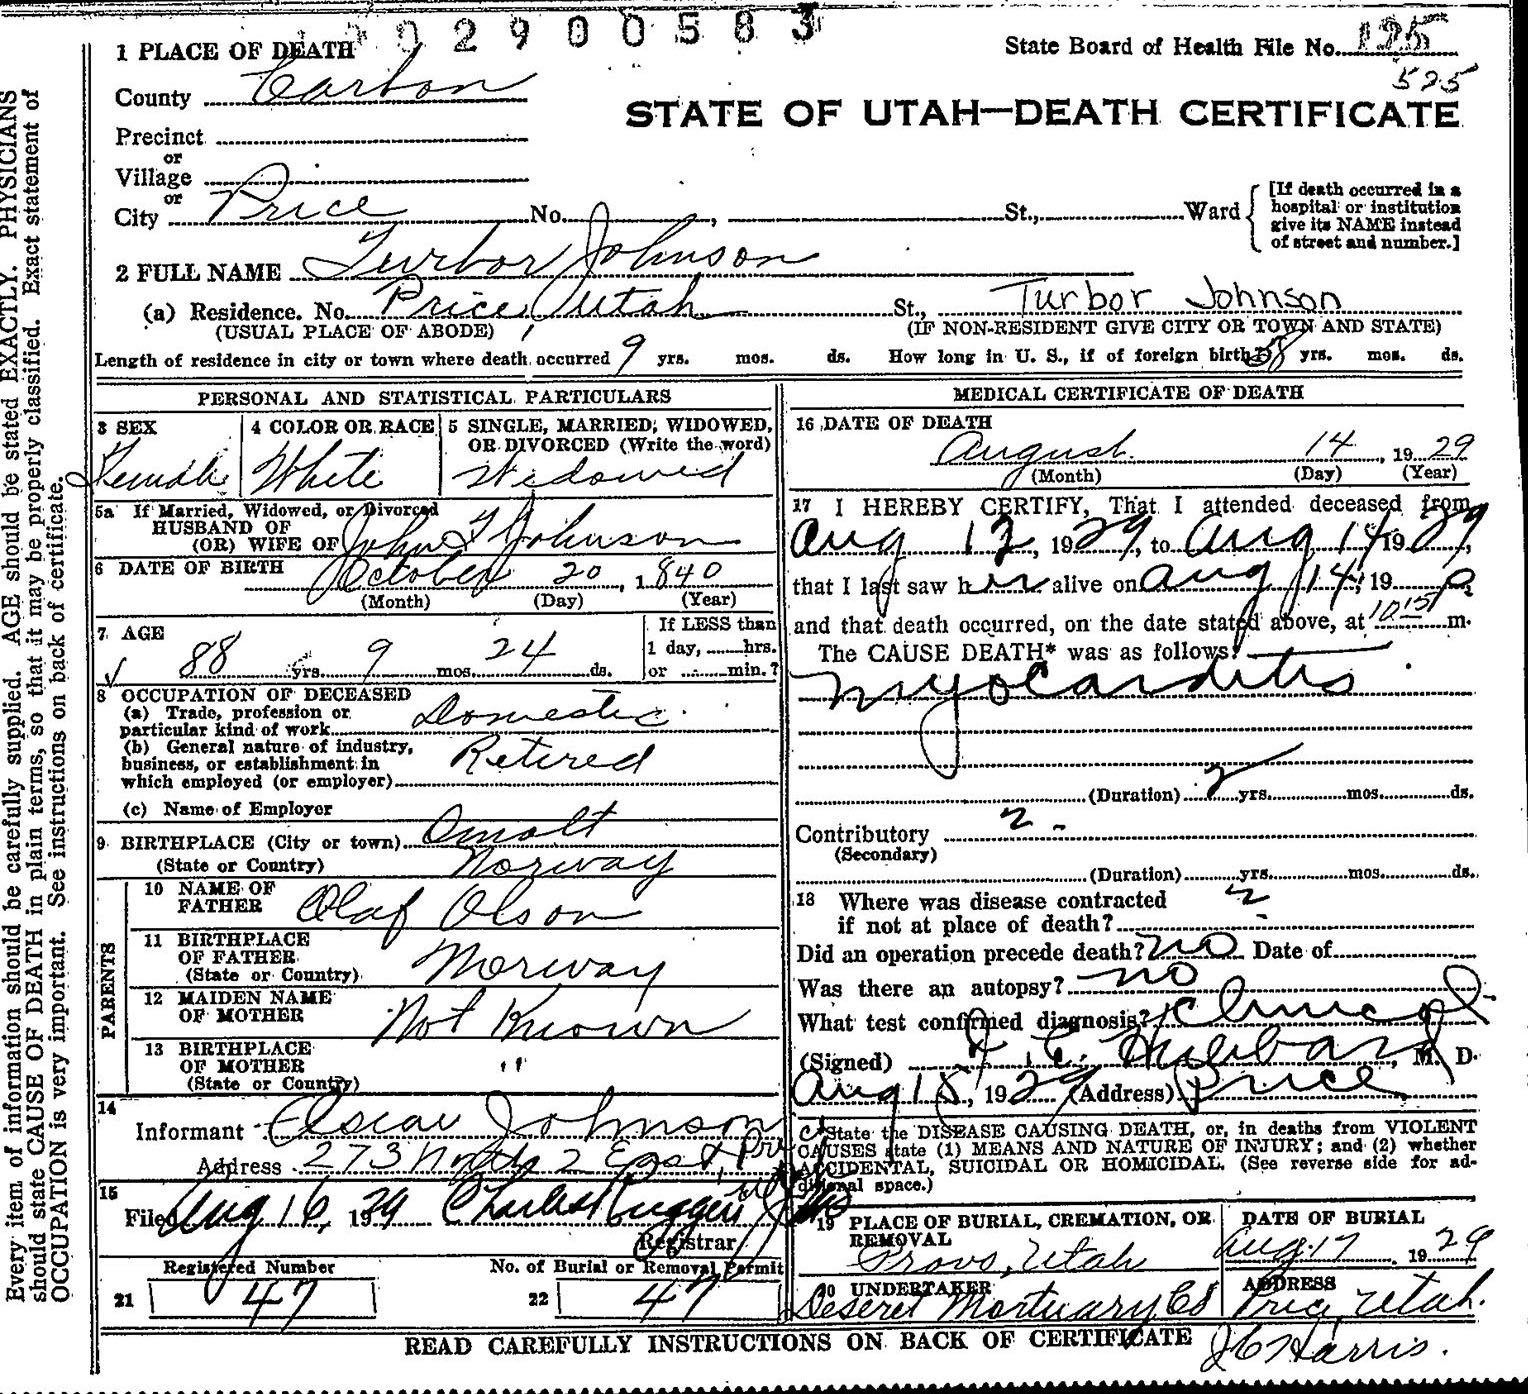 02900583
State Board of Health File No. 125
525
1 PLACE OF DEATH
County Carbon
STATE OF UTAH—DEATH CERTIFICATE
Precinct
or
Village
or
City Price No. , St., Ward
[If death occurred in a hospital or institution give its NAME instead of street and number.]
2 FULL NAME Turbor Johnson
(a) Residence. No. Price, Utah St., Turbor Johnson
(USUAL PLACE OF ABODE) (IF NON-RESIDENT GIVE CITY OR TOWN AND STATE)
Length of residence in city or town where death occurred 9 yrs. mos. ds. How long in U. S., if of foreign birth? 58 yrs. mos. ds.
PERSONAL AND STATISTICAL PARTICULARS
3 SEX 4 COLOR OR RACE 5 SINGLE, MARRIED, WIDOWED, OR DIVORCED (Write the word)
Female White Widowed
5a If Married, Widowed, or Divorced
HUSBAND OF
(OR) WIFE OF John T Johnson
6 DATE OF BIRTH October 20, 1840
(Month) (Day) (Year)
7 AGE 88 yrs. 9 mos. 24 ds.
If LESS than
1 day, hrs.
or min.?
8 OCCUPATION OF DECEASED
(a) Trade, profession or
particular kind of work Domestic
(b) General nature of industry,
business, or establishment in
which employed (or employer) Retired
(c) Name of Employer
9 BIRTHPLACE (City or town) Omolt
(State or Country) Norway
PARENTS
10 NAME OF FATHER Olaf Olson
11 BIRTHPLACE OF FATHER
(State or Country) Norway
12 MAIDEN NAME OF MOTHER Not Known
13 BIRTHPLACE OF MOTHER
(State or Country) "
14
Informant Oscar Johnson
Address 273 North 2 East, Price
15
Filed Aug 16, 1929
Registrar
Registered Number No. of Burial or Removal Permit
21 47 22 47
MEDICAL CERTIFICATE OF DEATH
16 DATE OF DEATH
August 14, 1929
(Month) (Day) (Year)
17 I HEREBY CERTIFY, That I attended deceased from
Aug 12, 1929, to Aug 14 1929,
that I last saw her alive on Aug 14, 19
and that death occurred, on the date stated above, at 10:15 a. m.
The CAUSE DEATH* was as follows:
Myocarditis
(Duration) 2 yrs. mos. ds.
Contributory ?
(Secondary)
(Duration) yrs. mos. ds.
18 Where was disease contracted
if not at place of death? ?
Did an operation precede death? no Date of
Was there an autopsy? no
What test confirmed diagnosis? Clinical
(Signed) J. C. Hubbard, M. D.
Aug 15, 1929 (Address) Price
State the DISEASE CAUSING DEATH, or, in deaths from VIOLENT
CAUSES state (1) MEANS AND NATURE OF INJURY; and (2) whether
ACCIDENTAL, SUICIDAL OR HOMICIDAL. (See reverse side for ad-
ditional space.)
19 PLACE OF BURIAL, CREMATION, OR REMOVAL DATE OF BURIAL
Provo, Utah Aug. 17 1929
20 UNDERTAKER ADDRESS
Deseret Mortuary Co Price, Utah.
READ CAREFULLY INSTRUCTIONS ON BACK OF CERTIFICATE
J C Harris.
Every item of information should be carefully supplied. AGE should be stated EXACTLY. PHYSICIANS
should state CAUSE OF DEATH in plain terms, so that it may be properly classified. Exact statement of
OCCUPATION is very important. See instructions on back of certificate.